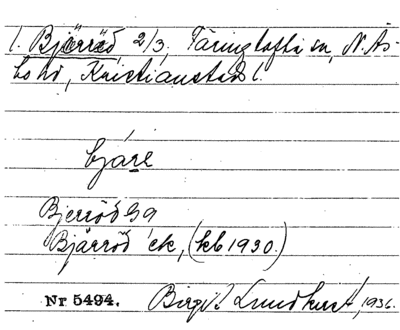 1. Bjärröd 2/3, Färingtofta sn, N. Ås-
bo hd, Kristianstads l.
bjárẹ
Bjerröd GA
Bjärröd ek, (kb 1930.)
Nr 5494. Birgit Lundquist, 1936.